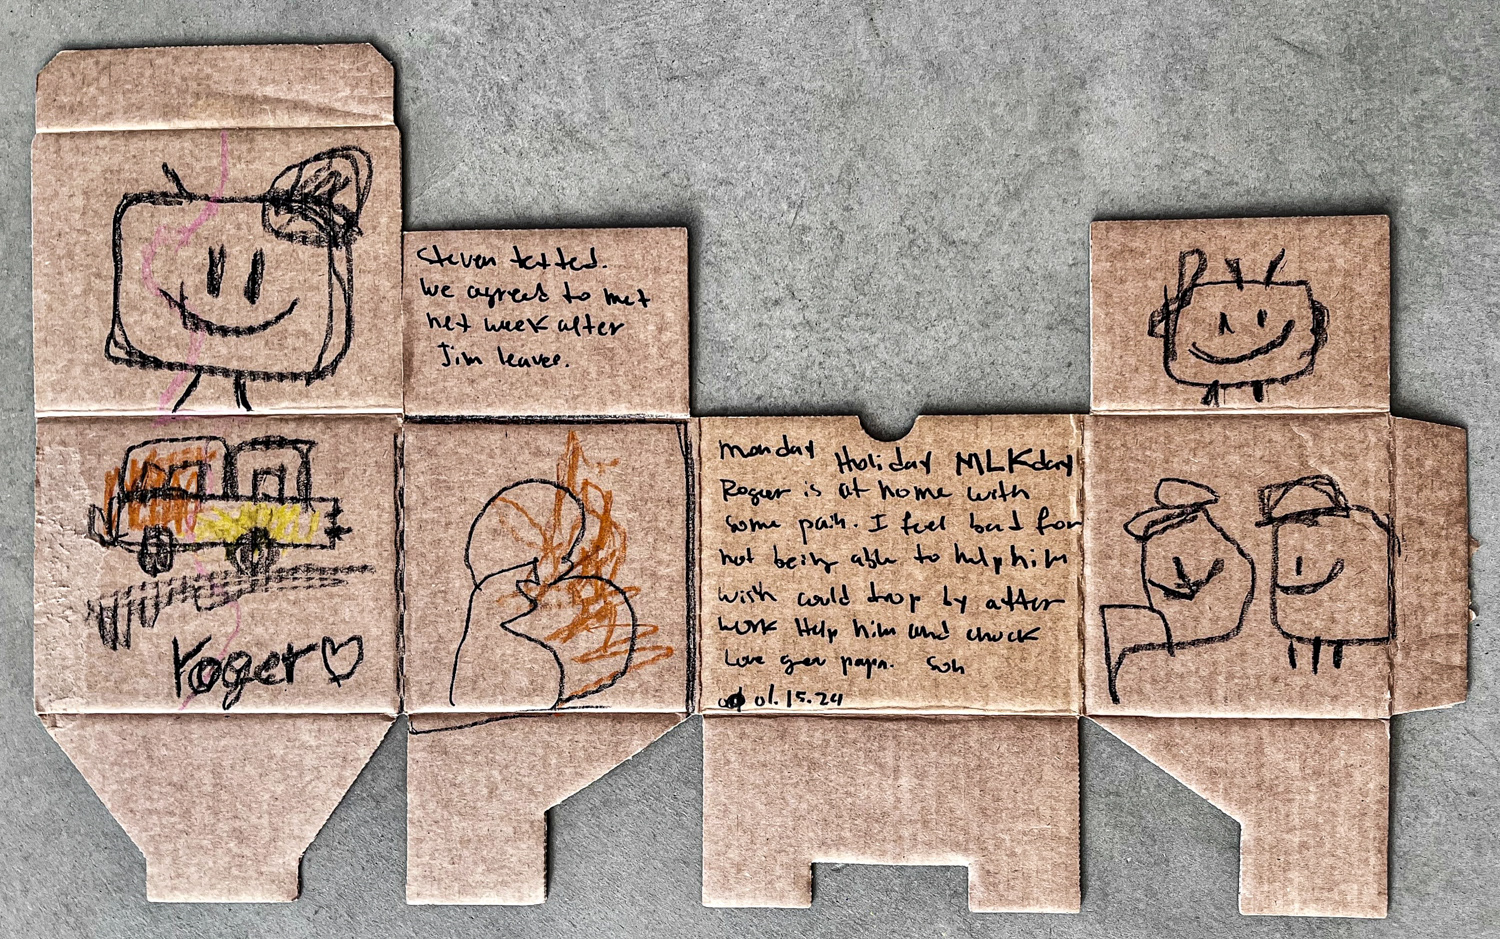 Steven texted.
We agreed to met
net week after
Jim leaves.
Monday Holiday MLK day
Roger is at home with
some pain. I feel bad for
not being able to help him
wish could drop by after
work Help him and chuck
Love your papa. Son
01.15.24
roger